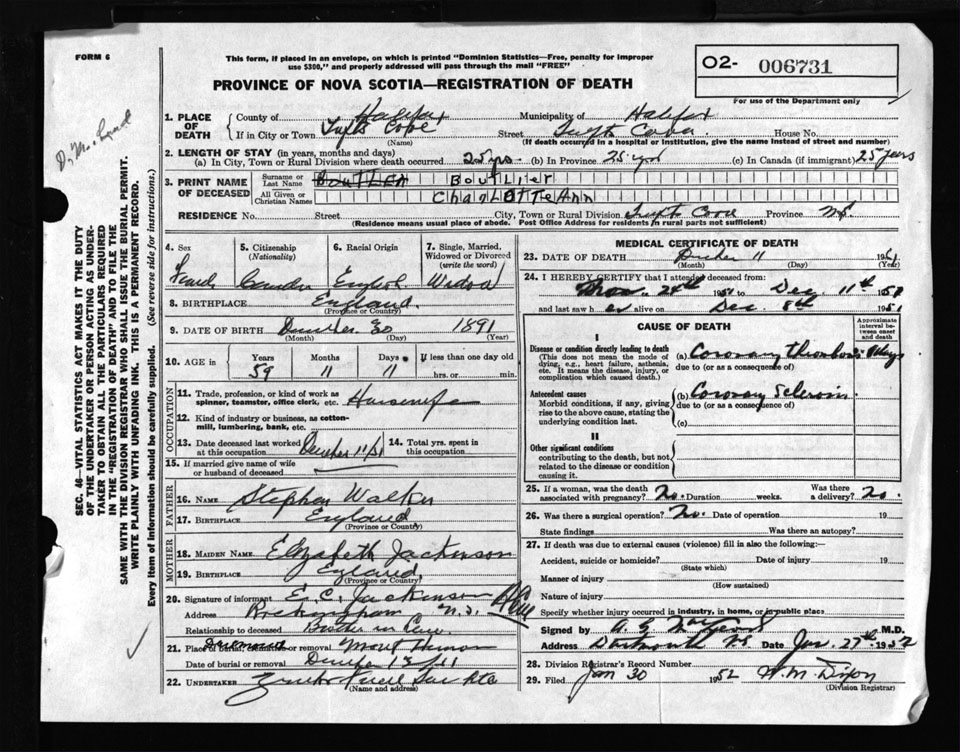 FORM 6
This form, if placed in an envelope, on which is printed "Dominion Statistics—Free, penalty for improper
use $300," and properly addressed will pass through the mail "FREE"
O2- 006731
PROVINCE OF NOVA SCOTIA—REGISTRATION OF DEATH
For use of the Department only
1. PLACE OF DEATH
County of Halifax Municipality of Halifax
If in City or Town Tufts Cove Street Tufts Cove House No.
(Name) (If death occurred in a hospital or institution, give the name instead of street and number)
2. LENGTH OF STAY (in years, months and days)
(a) In City, Town or Rural Division where death occurred 25 yrs (b) In Province 25 yrs (c) In Canada (if immigrant) 25 years
3. PRINT NAME OF DECEASED
Surname or Last Name BoutLier
All Given or Christian Names CharLoTTe Ann
RESIDENCE No. Street City, Town or Rural Division Tufts Cove Province N.S.
(Residence means usual place of abode. Post Office Address for residents in rural parts not sufficient)
4. Sex
5. Citizenship (Nationality)
6. Racial Origin English
7. Single, Married, Widowed or Divorced (write the word)
8. BIRTHPLACE England
(Province or Country)
9. DATE OF BIRTH 30 1891
(Month) (Day) (Year)
10. AGE in Years 59 Months 11 Days 11 If less than one day old hrs. or min.
OCCUPATION
11. Trade, profession, or kind of work as spinner, teamster, office clerk, etc. Housewife
12. Kind of industry or business, as cotton-mill, lumbering, bank, etc.
13. Date deceased last worked at this occupation
14. Total yrs. spent in this occupation
15. If married give name of wife or husband of deceased
FATHER
16. NAME Stephen Walker
17. BIRTHPLACE England
(Province or Country)
MOTHER
18. MAIDEN NAME Elizabeth Jackinson
19. BIRTHPLACE England
(Province or Country)
20. Signature of informant E. C. Jackinson
Address Rockingham N.S.
Relationship to deceased Brother in Law
21. Place of burial, cremation or removal
Date of burial or removal
22. UNDERTAKER
(Name and address)
MEDICAL CERTIFICATE OF DEATH
23. DATE OF DEATH 11
(Month) (Day) (Year)
24. I HEREBY CERTIFY that I attended deceased from:
Nov. 24th 1951 to Dec. 11th 1951
and last saw her alive on Dec. 8th 1951
CAUSE OF DEATH
Approximate interval between onset and death
I
Disease or condition directly leading to death
(This does not mean the mode of dying, e.g., heart failure, asthenia, etc. It means the disease, injury, or complication which caused death.)
(a) Coronary thrombosis
due to (or as a consequence of)
Antecedent causes
Morbid conditions, if any, giving rise to the above cause, stating the underlying condition last.
(b) Coronary Sclerosis
due to (or as a consequence of)
(c)
II
Other significant conditions
contributing to the death, but not related to the disease or condition causing it.
25. If a woman, was the death associated with pregnancy? No. Duration weeks. Was there a delivery? No.
26. Was there a surgical operation? No. Date of operation 19
State findings Was there an autopsy?
27. If death was due to external causes (violence) fill in also the following:—
Accident, suicide or homicide? Date of injury 19
(State which)
Manner of injury
(How sustained)
Nature of injury
Specify whether injury occurred in industry, in home, or in public place
Signed by M.D.
Dartmouth N.S. Date Jan. 29th 1952
28. Division Registrar's Record Number
29. Filed Jan 30 1952 W. M. Dixon
(Division Registrar)
SEC. 46—VITAL STATISTICS ACT MAKES IT THE DUTY
OF THE UNDERTAKER OR PERSON ACTING AS UNDER-
TAKER TO OBTAIN ALL THE PARTICULARS REQUIRED
IN THE "REGISTRATION OF DEATH" AND TO FILE THE
SAME WITH THE DIVISION REGISTRAR WHO SHALL ISSUE THE BURIAL PERMIT.
WRITE PLAINLY WITH UNFADING INK. THIS IS A PERMANENT RECORD.
Every item of information should be carefully supplied. (See reverse side for instructions.)